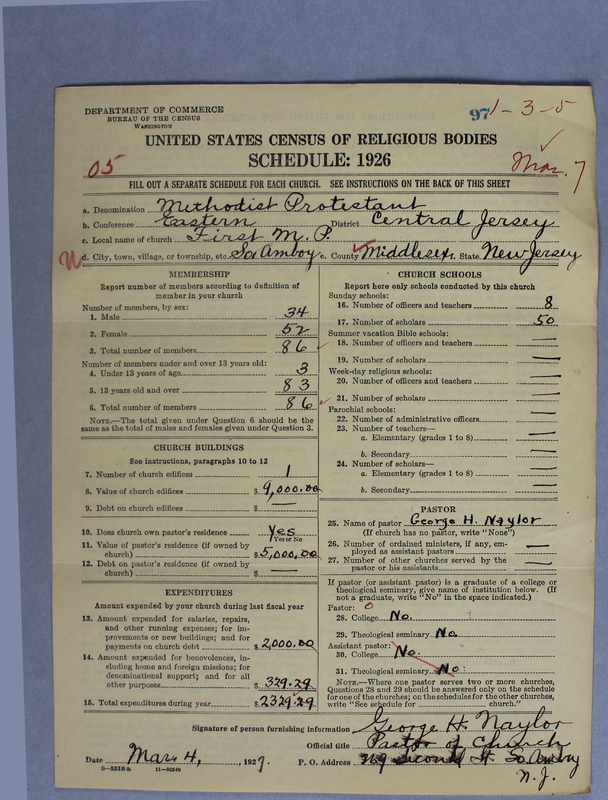 DEPARTMENT OF COMMERCE
BUREAU OF THE CENSUS
WASHINGTON
97 1-3-5
UNITED STATES CENSUS OF RELIGIOUS BODIES
SCHEDULE: 1926
05
Mar. 7
FILL OUT A SEPARATE SCHEDULE FOR EACH CHURCH. SEE INSTRUCTIONS ON THE BACK OF THIS SHEET
a. Denomination Methodist Protestant
b. Conference Eastern District Central Jersey
c. Local name of church First M. P.
d. City, town, village, or township, etc. So Amboy e. County Middlesex f. State New Jersey
MEMBERSHIP
Report number of members according to definition of
member in your church
Number of members, by sex:
1. Male 34
2. Female 52
3. Total number of members 86
Number of members under and over 13 years old:
4. Under 13 years of age 3
5. 13 years old and over 83
6. Total number of members 86
NOTE.—The total given under Question 6 should be the
same as the total of males and females given under Question 3.
CHURCH BUILDINGS
See instructions, paragraphs 10 to 12
7. Number of church edifices 1
8. Value of church edifices $ 9,000.00
9. Debt on church edifices $ —
10. Does church own pastor's residence? Yes
Yes or No
11. Value of pastor's residence (if owned by
church) $ 5,000.00
12. Debt on pastor's residence (if owned by
church) $ —
EXPENDITURES
Amount expended by your church during last fiscal year
13. Amount expended for salaries, repairs,
and other running expenses; for im-
provements or new buildings; and for
payments on church debt $ 2,000.00
14. Amount expended for benevolences, in-
cluding home and foreign missions; for
denominational support; and for all
other purposes $ 329.29
15. Total expenditures during year $ 2329.29
CHURCH SCHOOLS
Report here only schools conducted by this church
Sunday schools:
16. Number of officers and teachers 8
17. Number of scholars 50
Summer vacation Bible schools:
18. Number of officers and teachers —
19. Number of scholars —
Week-day religious schools:
20. Number of officers and teachers —
21. Number of scholars —
Parochial schools:
22. Number of administrative officers —
23. Number of teachers—
a. Elementary (grades 1 to 8) —
b. Secondary —
24. Number of scholars—
a. Elementary (grades 1 to 8) —
b. Secondary —
PASTOR
25. Name of pastor George H. Naylor
(If church has no pastor, write "None")
26. Number of ordained ministers, if any, em-
ployed as assistant pastors —
27. Number of other churches served by the
pastor or his assistants —
If pastor (or assistant pastor) is a graduate of a college or
theological seminary, give name of institution below. (If
not a graduate, write "No" in the space indicated.)
Pastor: 0
28. College No.
29. Theological seminary No.
Assistant pastor:
30. College No.
31. Theological seminary No.
NOTE.—Where one pastor serves two or more churches,
Questions 28 and 29 should be answered only on the schedule
for one of the churches; on the schedules for the other churches,
write "See schedule for church."
Signature of person furnishing information George H. Naylor
Official title Pastor of Church
Date Mar. 4, 1927. P. O. Address Second St. So. Amboy
N. J.
8—5518a 11—9054b